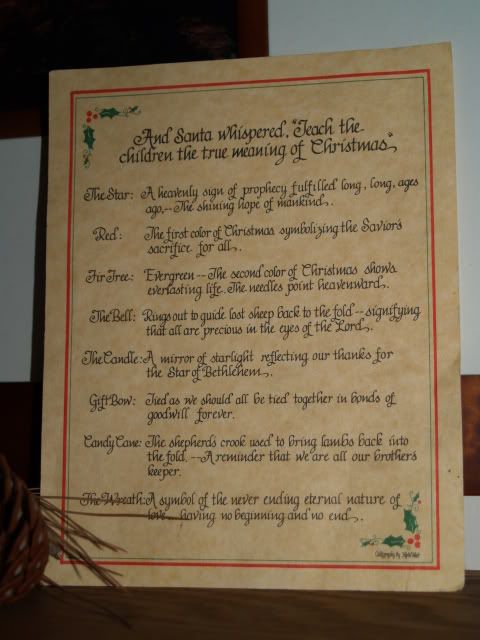 And Santa whispered, "Teach the
children the true meaning of Christmas"
The Star: A heavenly sign of prophecy fulfilled long, long, ages
ago,--The shining hope of mankind.
Red: The first color of Christmas symbolizing the Savior's
sacrifice for all.
Fir Tree: Evergreen--The second color of Christmas shows
everlasting life. The needles point heavenward.
The Bell: Rings out to guide lost sheep back to the fold--signifying
that all are precious in the eyes of the Lord.
The Candle: A mirror of starlight reflecting our thanks for
the Star of Bethlehem.
Gift Bow: Tied as we should all be tied together in bonds of
goodwill forever.
Candy Cane: The shepherds crook used to bring lambs back into
the fold.--A reminder that we are all our brothers
keeper.
The Wreath: A symbol of the never ending eternal nature of
love... having no beginning and no end.
Calligraphy by